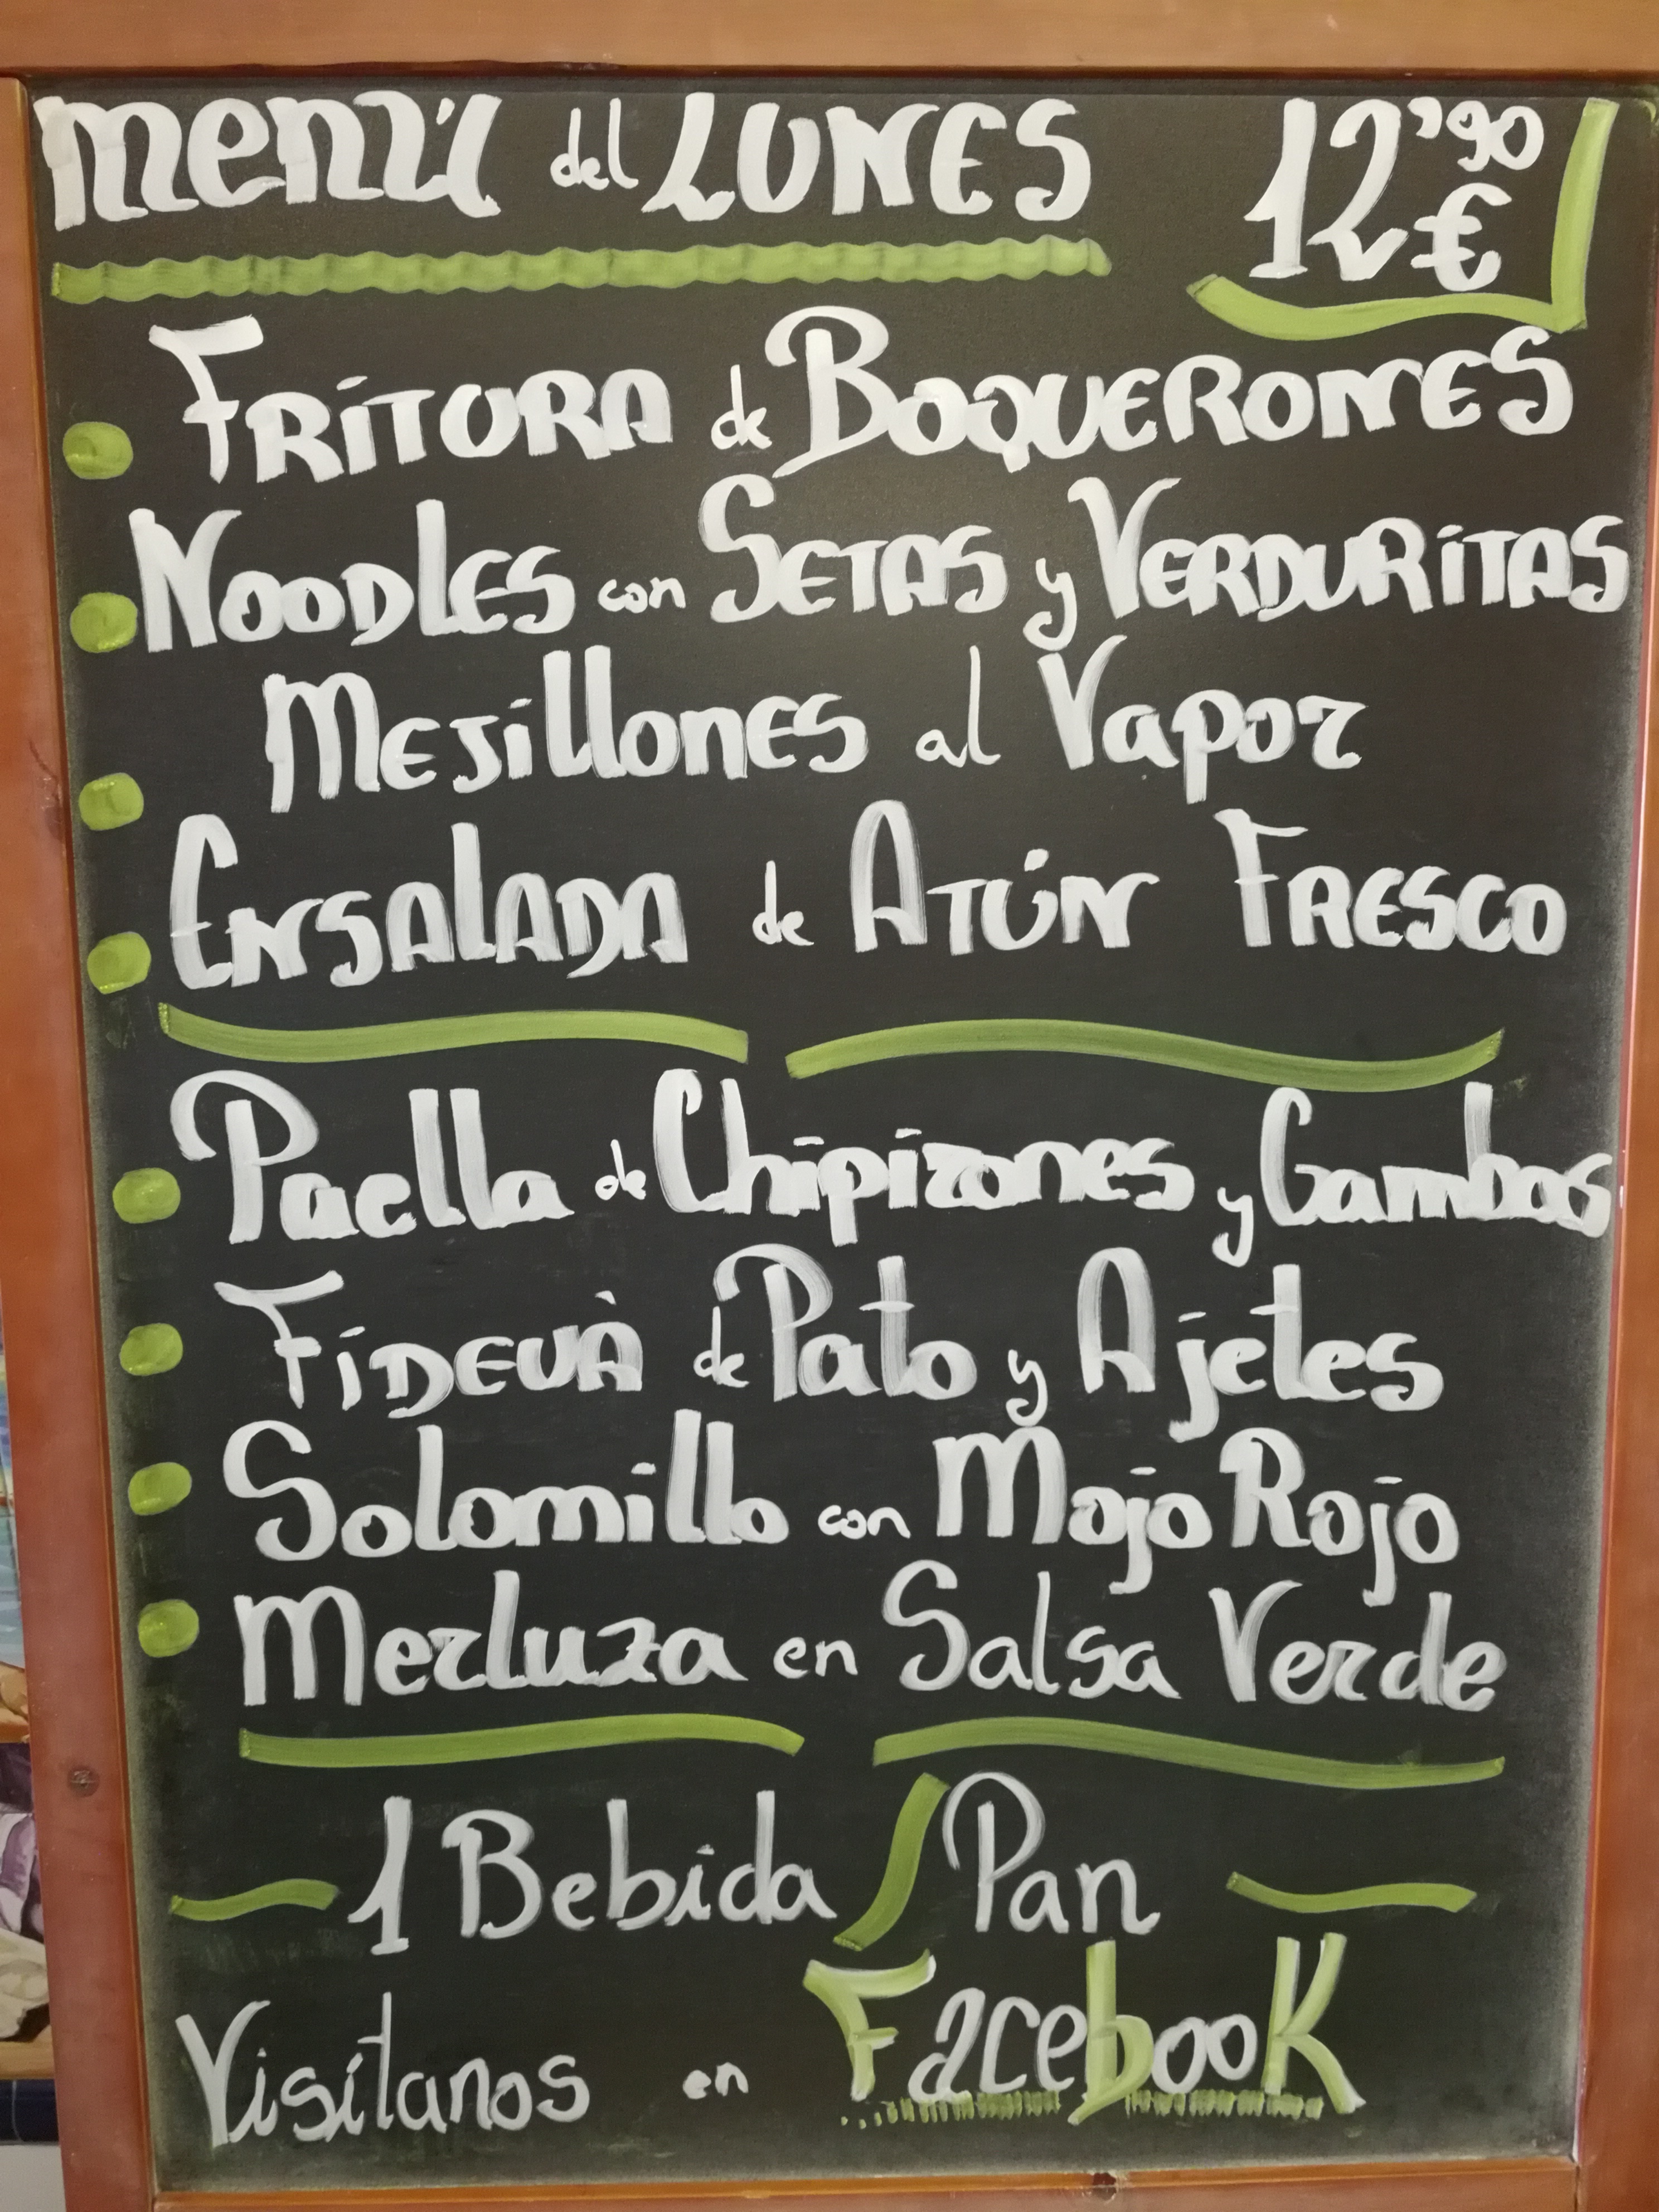 Menú del LUNES 12'90 €
FRITURA de BOQUERONES
NOODLES con SETAS y VERDURITAS
MEJillonES al Vapor
ENSALADA de ATÚN FRESCO
Paella de Chipirones y Gambas
FIDEUÀ de Pato y Ajetes
Solomillo con Mojo Rojo
Merluza en Salsa Verde
1 Bebida / Pan
Visítanos en FacebooK